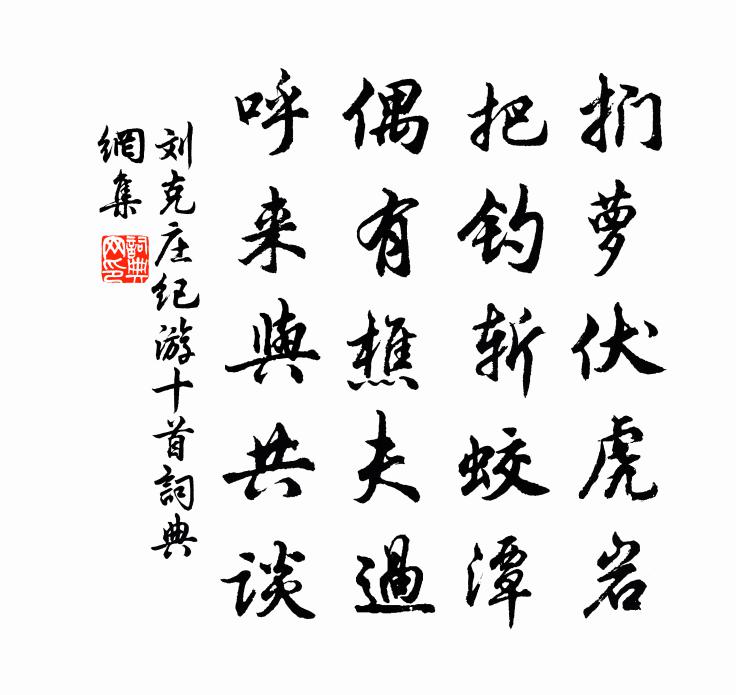 扪萝伏虎岩
把钓斩蛟潭
偶有樵夫過
呼来與共谈
刘克庄纪游十首詞典
網集
詞典
网印